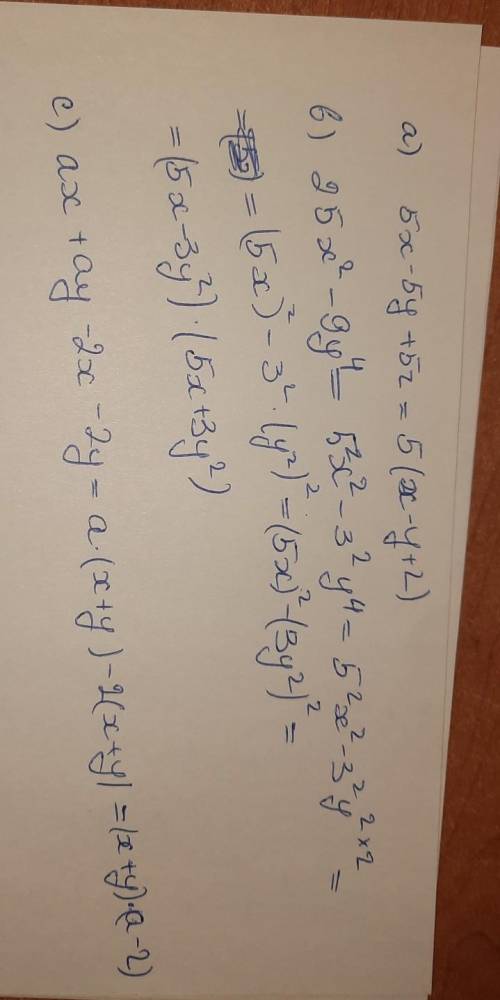 a) 5x-5y+5z = 5(x-y+z)
b) 25x² - 9y⁴ = 5²x² - 3²y⁴ = 5²x² - 3²y²ˣ² =
= (5x)² - 3²·(y²)² = (5x)² - (3y²)² =
= (5x-3y²)·(5x+3y²)
c) ax + ay - 2x - 2y = a·(x+y) - 2(x+y) = (x+y)·(a-2)